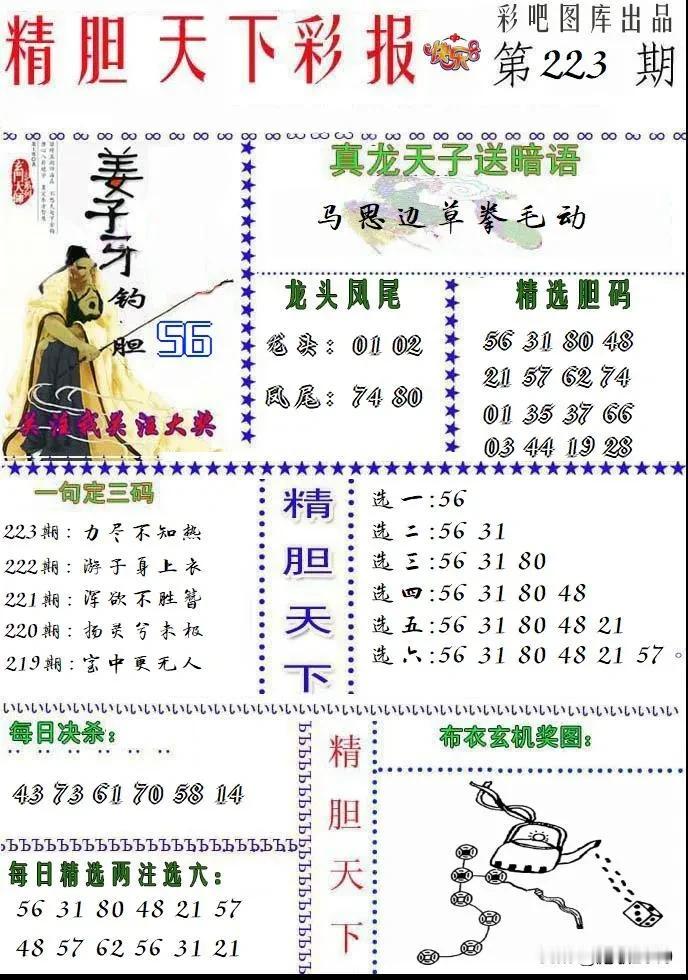 彩吧图库出品
精胆天下彩报
快乐8
第223期
姜子牙钓胆
56
玄門大師
关注我关注大奖
真龙天子送暗语
马思边草拳毛动
龙头凤尾
龙头：01 02
凤尾：74 80
精选胆码
56 31 80 48
21 57 62 74
01 35 37 66
03 44 19 28
一句定三码
223期：力尽不知热
222期：游子身上衣
221期：浑欲不胜簪
220期：扬灵兮未极
219期：室中更无人
精胆天下
选一:56
选二:56 31
选三:56 31 80
选四:56 31 80 48
选五:56 31 80 48 21
选六:56 31 80 48 21 57。
每日决杀：
43 73 61 70 58 14
每日精选两注选六：
56 31 80 48 21 57
48 57 62 56 31 21
精胆天下
布衣玄机奖图：